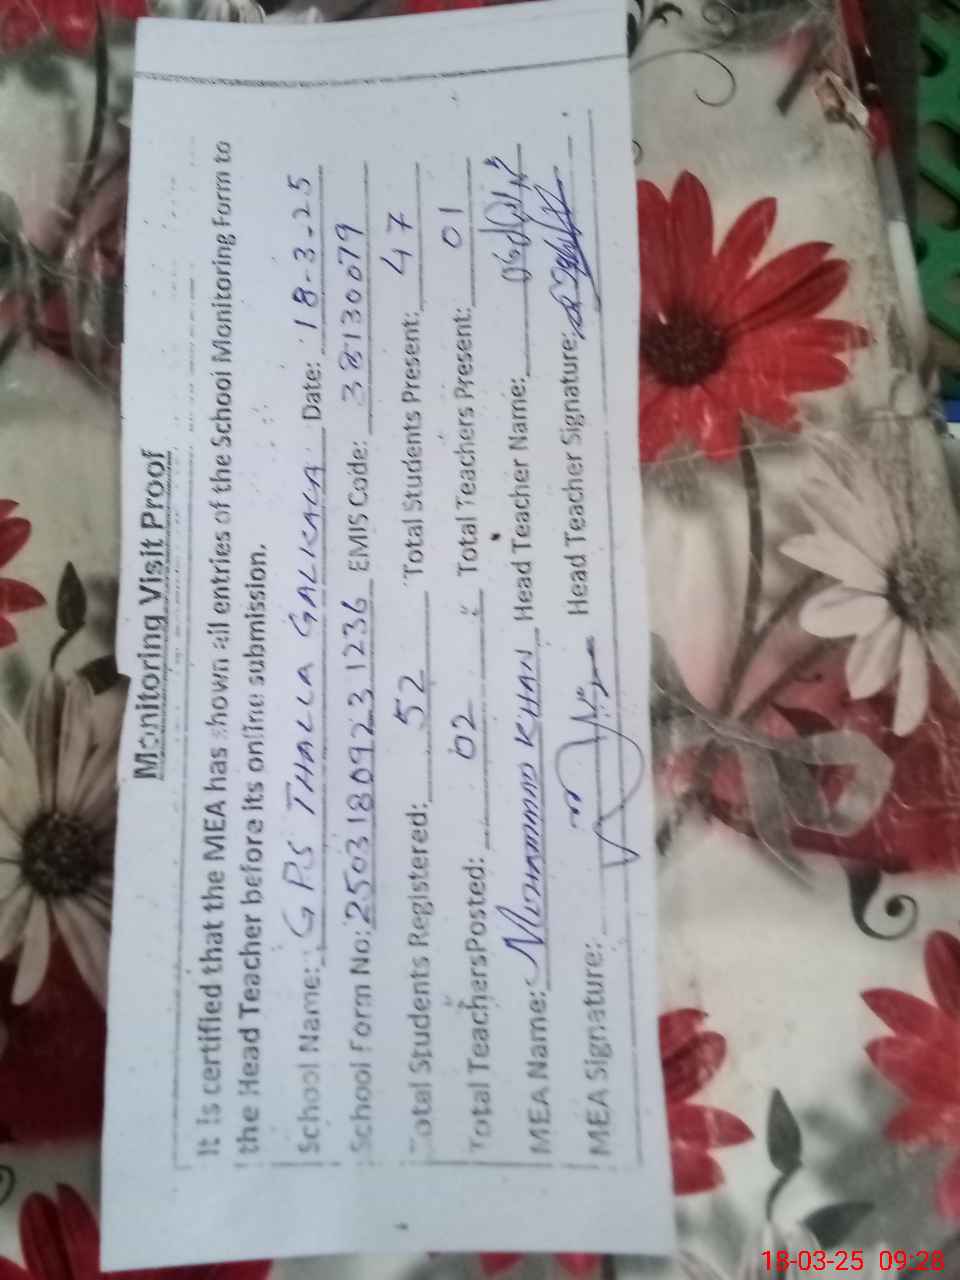 Monitoring Visit Proof
It is certified that the MEA has shown all entries of the School Monitoring Form to
the Head Teacher before its online submission.
School Name: GPS THALLA GALKALA Date: 18-3-25
School Form No: 25031809231236 EMIS Code: 38130079
Total Students Registered: 52 Total Students Present: 47
Total TeachersPosted: 02 Total Teachers Present: 01
MEA Name: Mohammad KHAN Head Teacher Name:
MEA Signature: Head Teacher Signature:
18-03-25 09:28